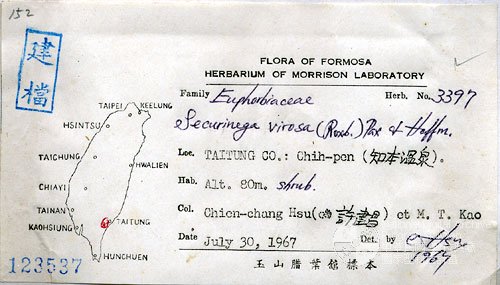 152
建檔
FLORA OF FORMOSA
HERBARIUM OF MORRISON LABORATORY
Family Euphorbiaceae Herb. No. 3397
Securinega virosa (Roxb.) Pax & Hoffm.
Loc. TAITUNG CO.: Chih-pen (知本溫泉).
Hab. Alt. 80m. shrub.
Col. Chien-chang Hsu (許建昌) et M. T. Kao
Date July 30, 1967 Det. by C. Hsu
1967
玉山腊葉館標本
TAIPEI
KEELUNG
HSINTSU
TAICHUNG
HWALIEN
CHIAYI
TAINAN
TAITUNG
KAOHSIUNG
HUNCHUEN
123537